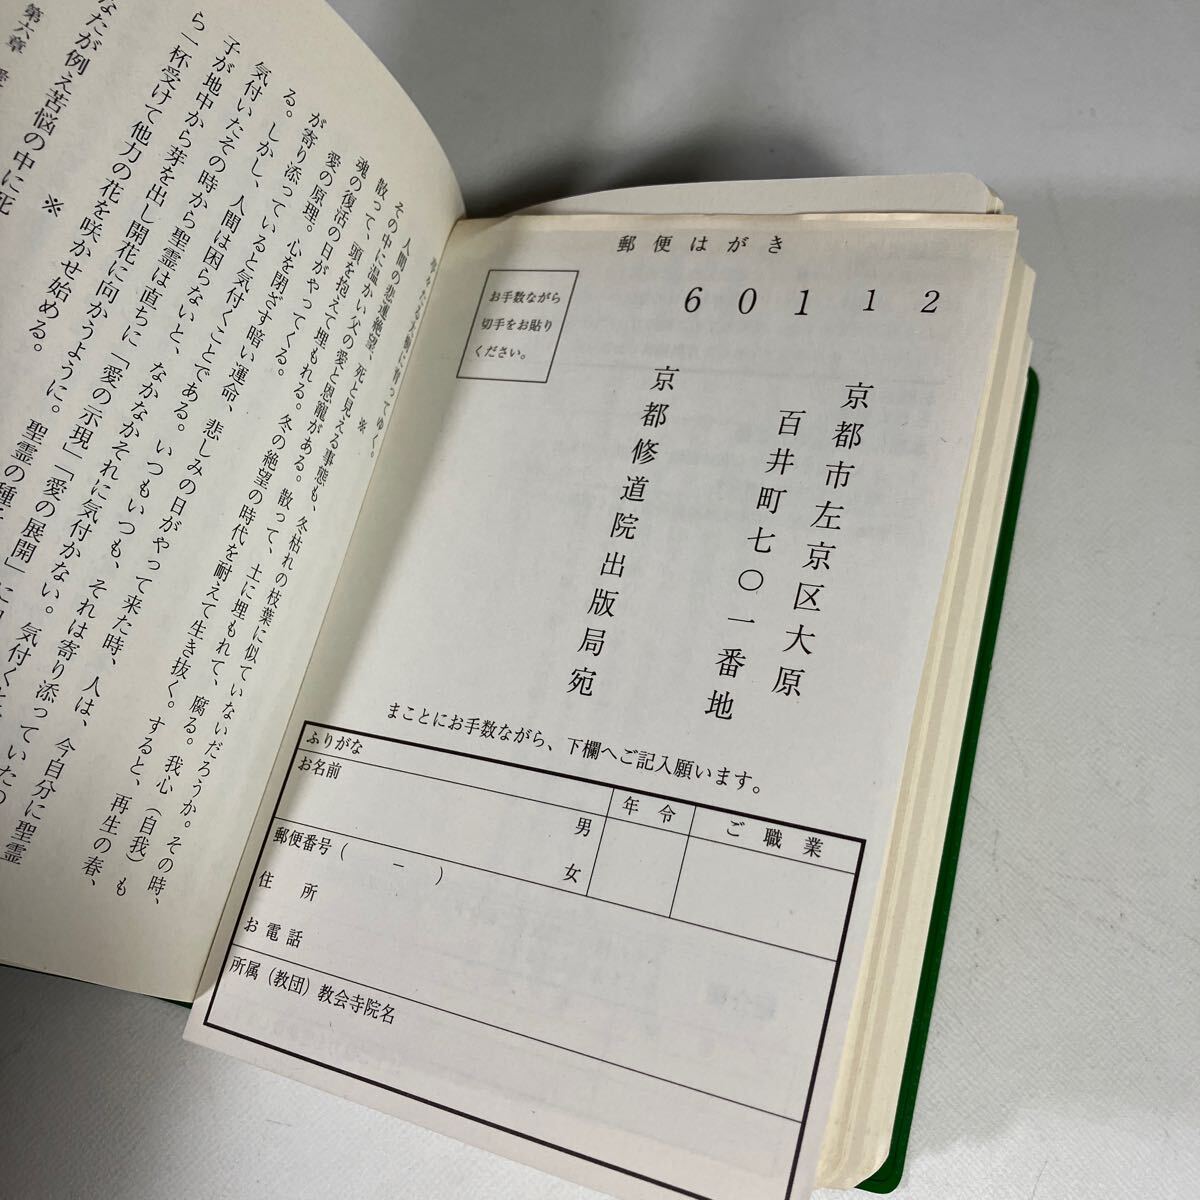 郵便はがき
601112
お手数ながら
切手をお貼り
ください。
京都市左京区大原
百井町七〇一番地
京都修道院出版局宛
まことにお手数ながら、下欄へご記入願います。
ふりがな
お名前
男
女
年令
ご職業
郵便番号(　－　)
住所
お電話
所属(教団)教会寺院名
人間の悲運絶望、死と見える事態も、冬枯れの枝葉に似ていないだろうか。その時、
その中に温かい父の愛と恩寵がある。散って、土に埋もれて、腐る。我心(自我)も
散って、頭を抱えて埋もれる。冬の絶望の時代を耐えて生き抜く。すると、再生の春、
魂の復活の日がやってくる。
愛の原理。心を閉ざす暗い運命、悲しみの日がやって来た時、人は、今自分に聖霊
が寄り添っていると気付くことである。いつもいつも、それは寄り添っていたの
る。しかし、人間は困らないと、なかなかそれに気付かない。気付くと
気付いたその時から聖霊は直ちに「愛の示現」「愛の展開」に
子が地中から芽を出し開花に向かうように。聖霊の種
ら一杯受けて他力の花を咲かせ始める。
※
なたが例え苦悩の中に死
第六章